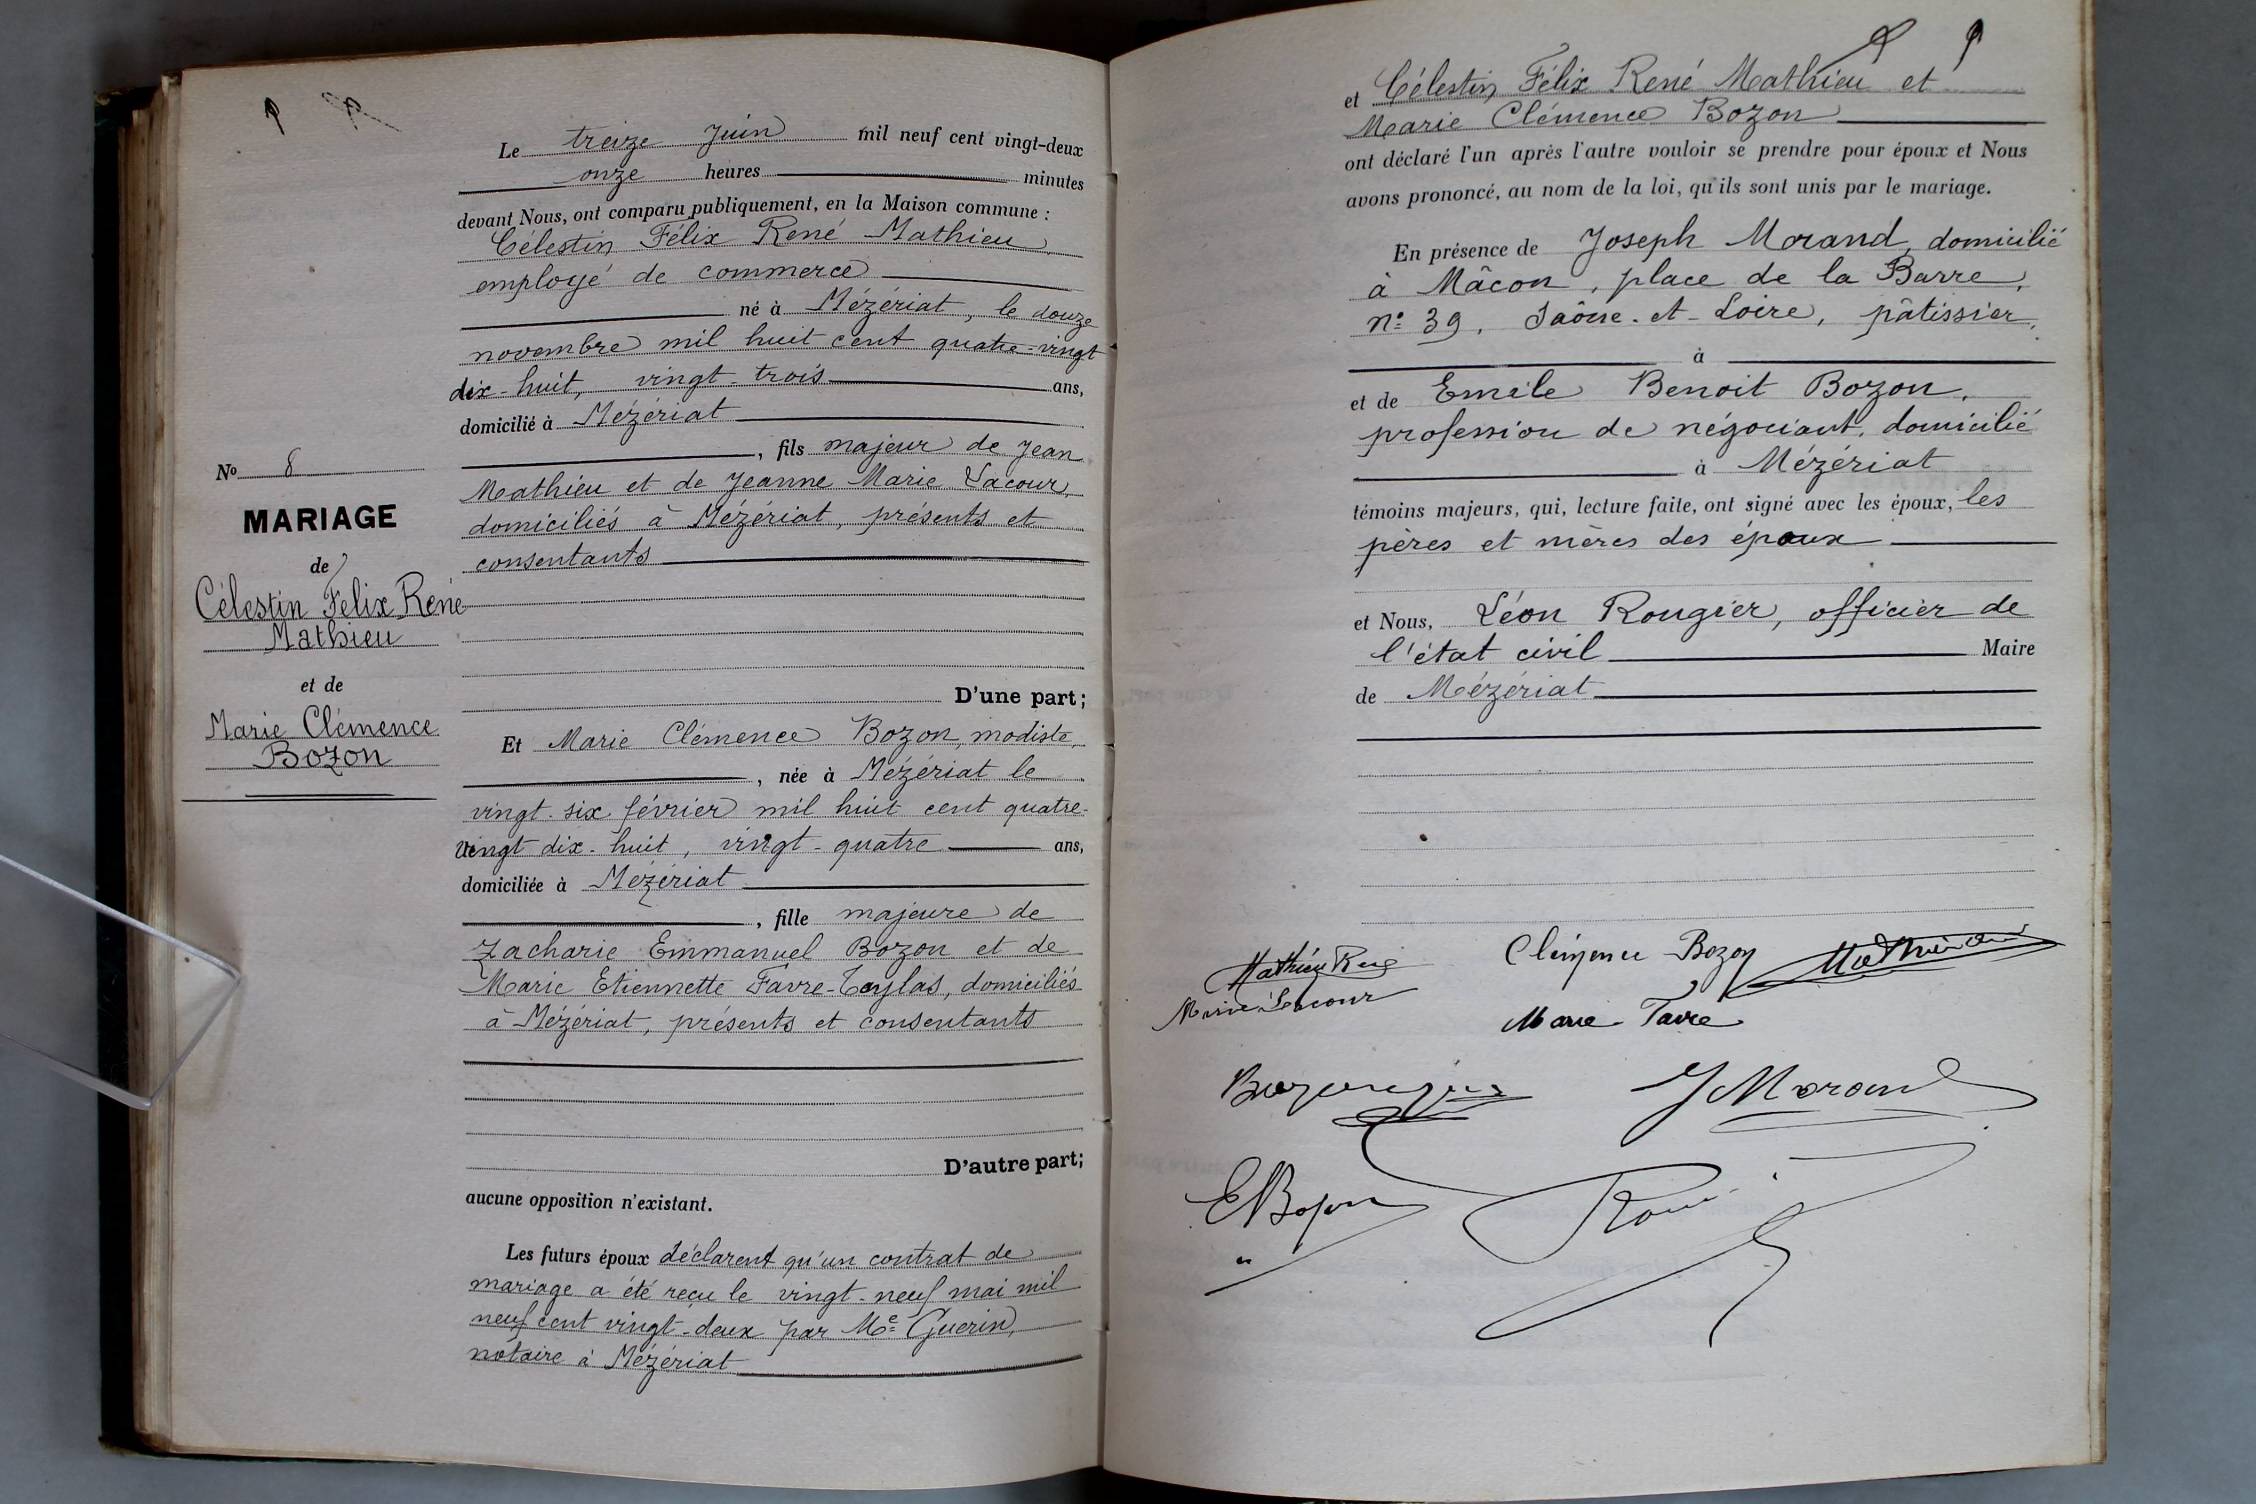 Le treize Juin mil neuf cent vingt-deux
onze heures minutes
devant Nous, ont comparu publiquement, en la Maison commune :
Célestin Félix René Mathieu,
employé de commerce
né à Mézériat, le douze
novembre mil huit cent quatre-vingt
dix-huit, vingt-trois ans,
domicilié à Mézériat
, fils majeur de Jean
Mathieu et de Jeanne Marie Lacour,
domiciliés à Mézériat, présents et
consentants
D'une part;
Nº 8
MARIAGE
de
Célestin Felix René
Mathieu
et de
Marie Clémence
Bozon
Et Marie Clémence Bozon, modiste,
, née à Mézériat le
vingt-six février mil huit cent quatre-
vingt dix-huit, vingt-quatre ans,
domiciliée à Mézériat
, fille majeure de
Zacharie Emmanuel Bozon et de
Marie Etiennette Favre-Taylas, domiciliés
à Mézériat, présents et consentants
D'autre part;
aucune opposition n'existant.
Les futurs époux déclarent qu'un contrat de
mariage a été reçu le vingt-neuf mai mil
neuf cent vingt-deux par Me Guerin,
notaire à Mézériat
et Célestin Félix René Mathieu et
Marie Clémence Bozon
ont déclaré l'un après l'autre vouloir se prendre pour époux et Nous
avons prononcé, au nom de la loi, qu'ils sont unis par le mariage.
En présence de Joseph Morand, domicilié
à Mâcon, place de la Barre,
nº 39, Saône-et-Loire, pâtissier,
à
et de Emile Benoit Bozon,
profession de négociant, domicilié
à Mézériat
témoins majeurs, qui, lecture faite, ont signé avec les époux, les
pères et mères des époux
et Nous, Léon Rougier, officier de
l'état civil Maire
de Mézériat
Mathieu René Clémence Bozon Mathieu
Marie Lacour Marie Favre
Bozon J Morand
E Bozon